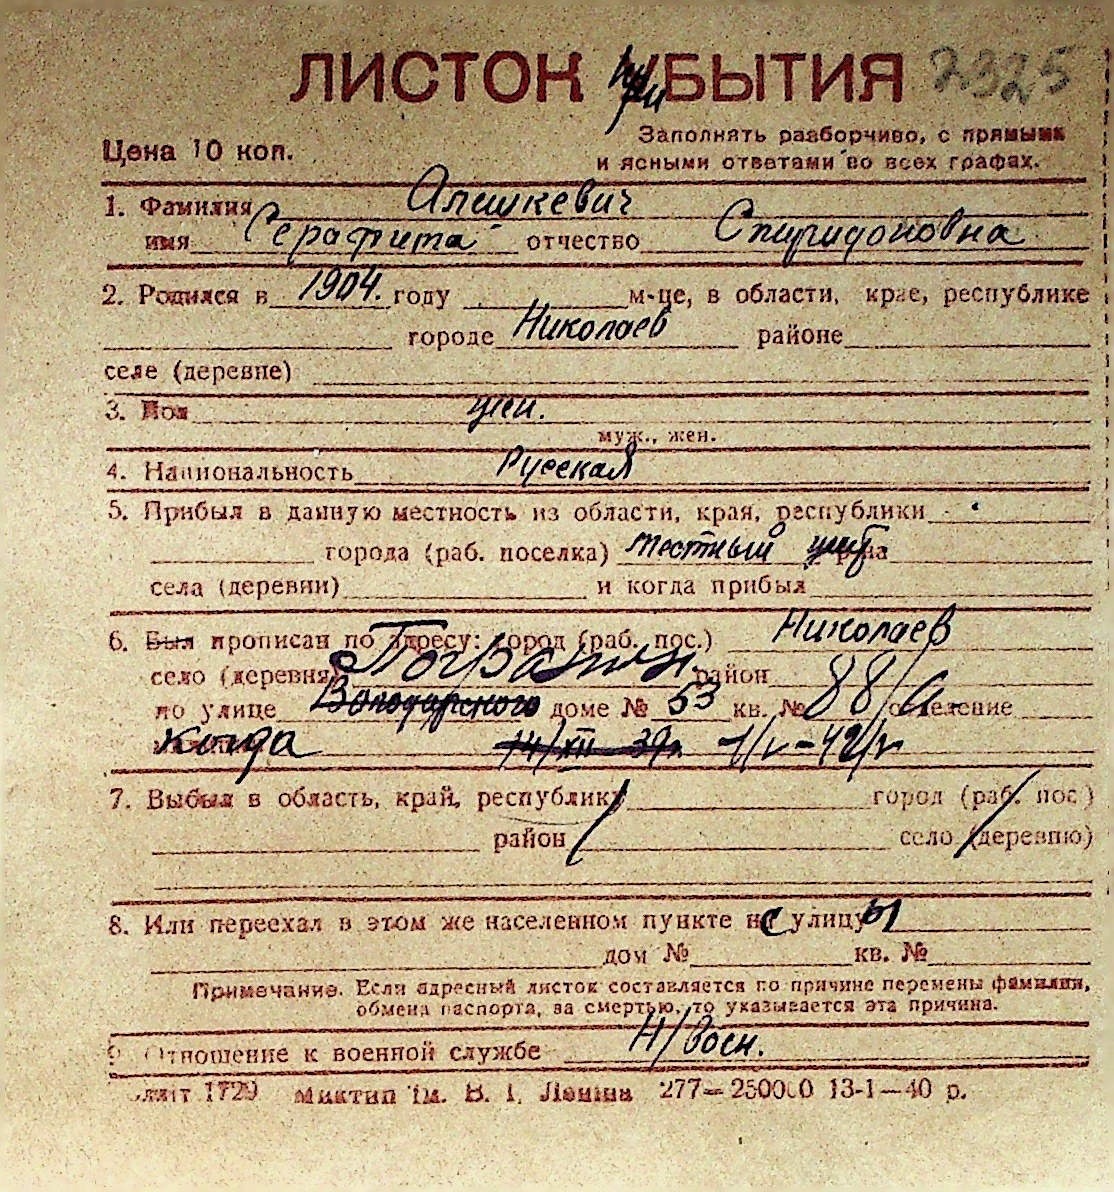 ЛИСТОК при УБЫТИЯ 2325
Цена 10 коп.
Заполнять разборчиво, с прямыми
и ясными ответами во всех графах.
1. Фамилия Алешкевич
имя Серафима отчество Спиридоновна
2. Родился в 1904. году м-це, в области, крае, республике
городе Николаев районе
селе (деревне)
3. Пол жен.
муж., жен.
4. Национальность Русская
5. Прибыл в данную местность из области, края, республики
города (раб. поселка) местный жит
села (деревни) и когда прибыл
6. Был прописан по адресу: город (раб. пос.) Николаев
село (деревня) Погранич район
по улице Володарского доме № 53 кв. № 88/а отделение
когда 14/XII-39г. 1/V-42г
7. Выбыл в область, край, республику город (раб. пос.)
район село (деревню)
8. Или переехал в этом же населенном пункте с улицы
дом № кв. №
Примечание. Если адресный листок составляется по причине перемены фамилии,
обмена паспорта, за смертью, то указывается эта причина.
9. Отношение к военной службе Н/воен.
1729 Миктип ім. В. І. Леніна 277—250000 13-1—40 р.